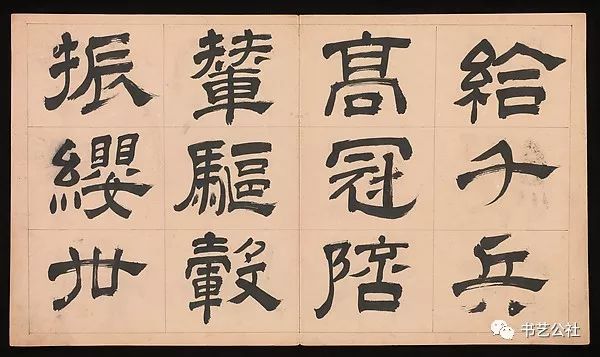 給千兵
髙冠陪
輦驅轂
振纓丗
书艺公社